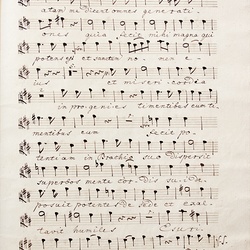 atam me dicent omnes generati-
ones quia fecit mihi magna qui
potens est et sanctum nomen e-
ius et misericordia
in progenies timentibus eum ti-
mentibus eum Fecit po-
tentiam in Brachio suo dispersit
superbos mente cordis sui de-
posuit potentes de sede et exal-
tavit humiles Esuri-